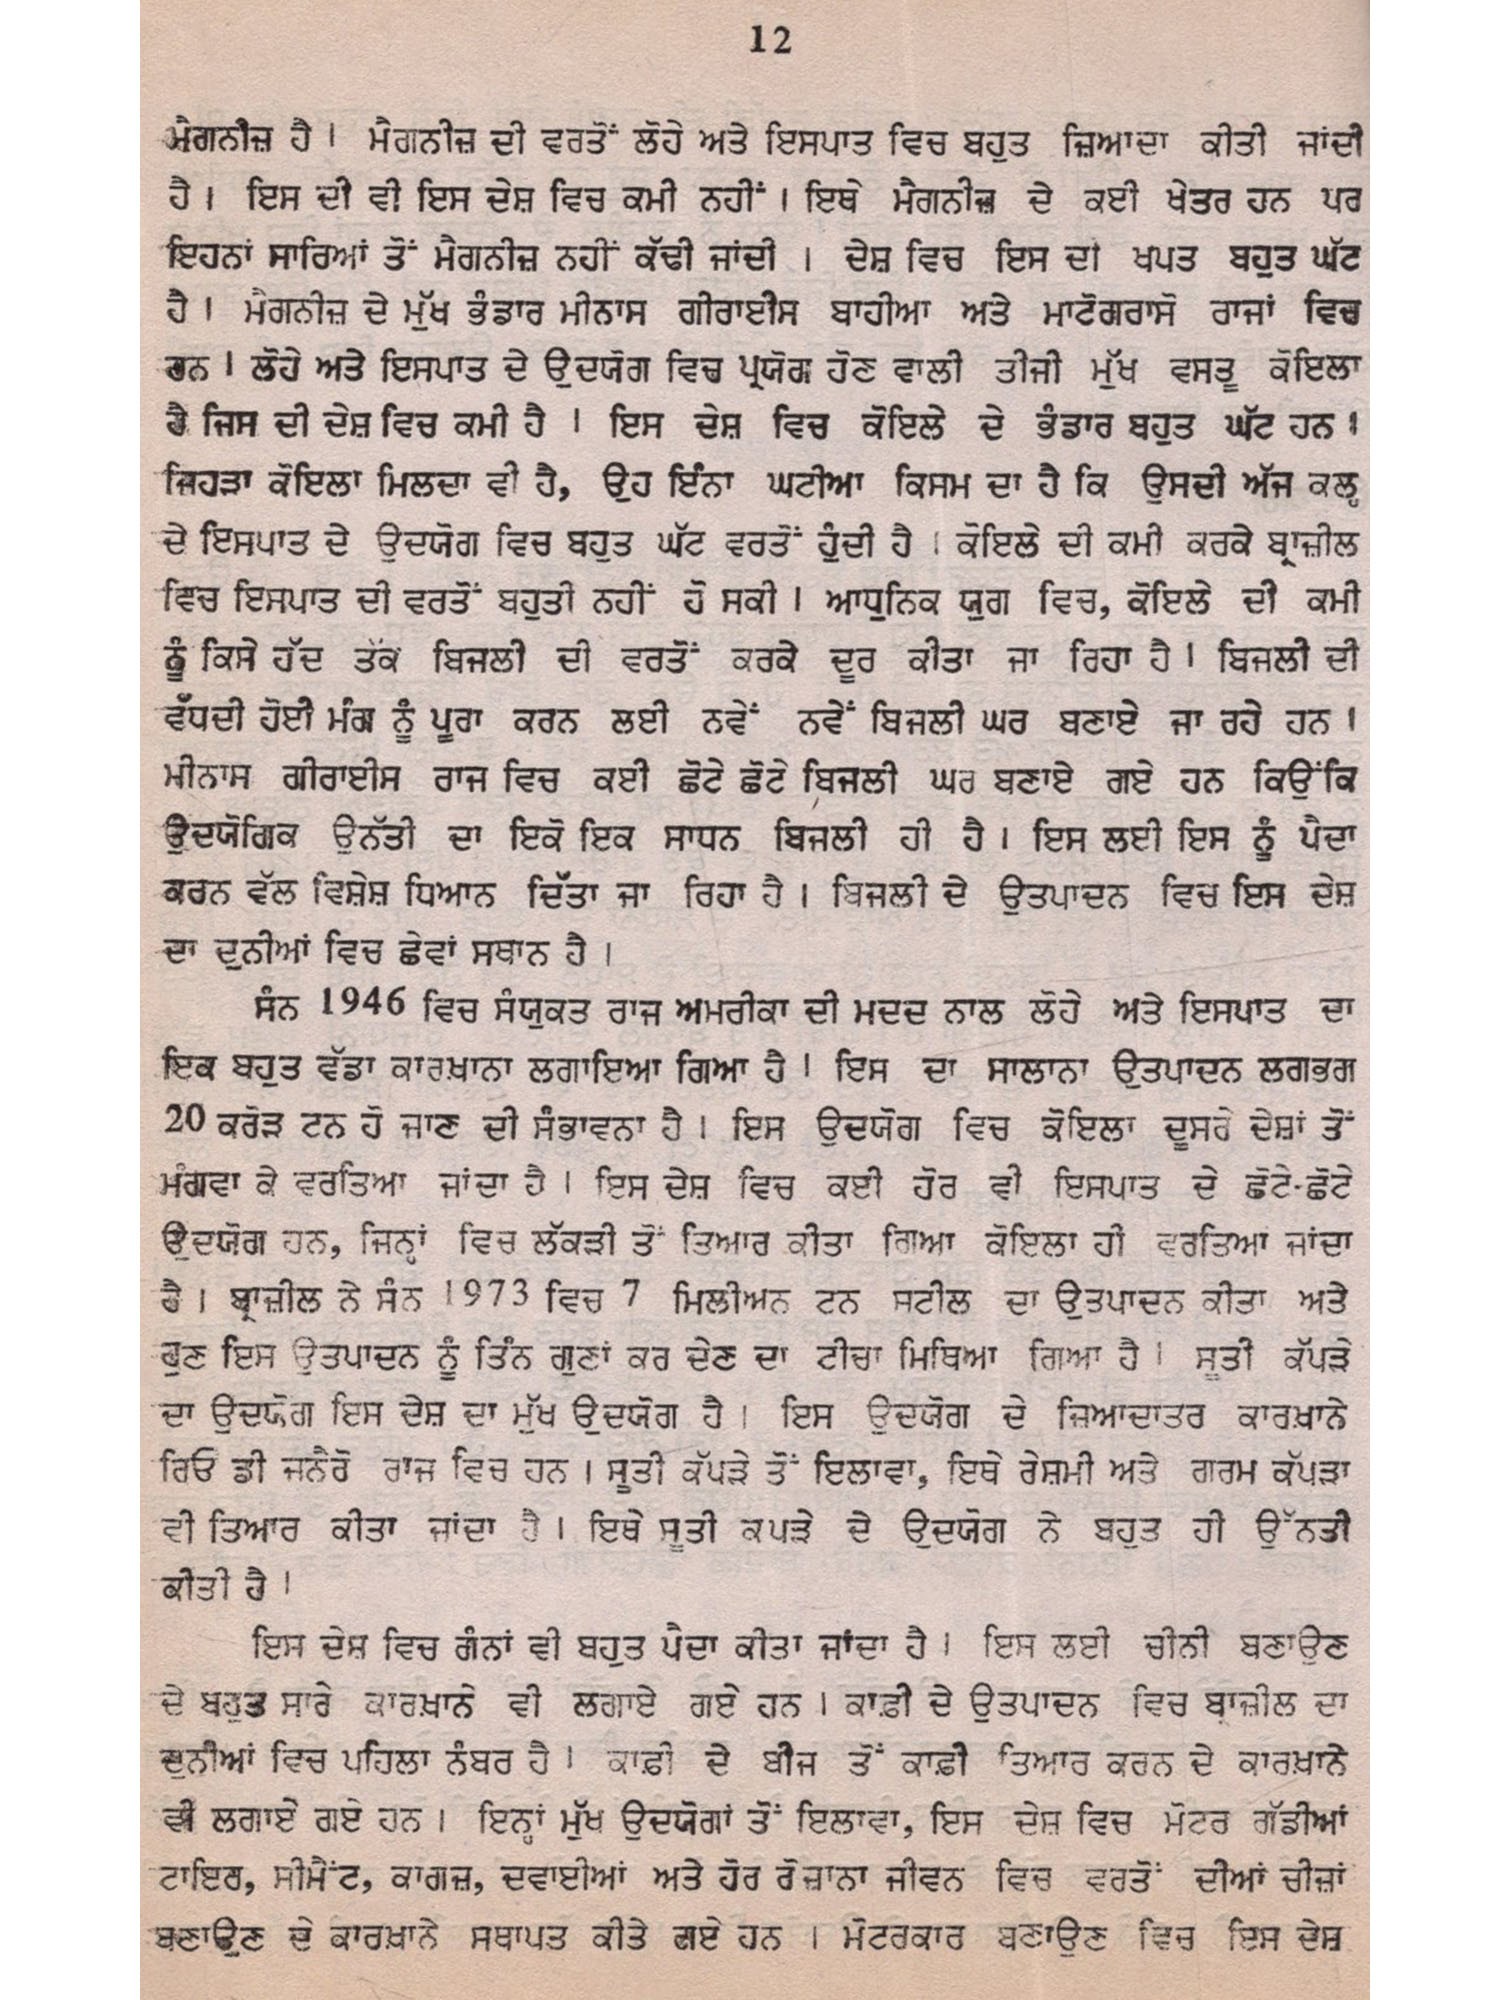 12
ਮੈਗਨੀਜ਼ ਹੈ। ਮੈਗਨੀਜ਼ ਦੀ ਵਰਤੋਂ ਲੋਹੇ ਅਤੇ ਇਸਪਾਤ ਵਿਚ ਬਹੁਤ ਜ਼ਿਆਦਾ ਕੀਤੀ ਜਾਂਦੀ
ਹੈ। ਇਸ ਦੀ ਵੀ ਇਸ ਦੇਸ਼ ਵਿਚ ਕਮੀ ਨਹੀਂ। ਇਥੇ ਮੈਗਨੀਜ਼ ਦੇ ਕਈ ਖੇਤਰ ਹਨ ਪਰ
ਇਹਨਾਂ ਸਾਰਿਆਂ ਤੋਂ ਮੈਗਨੀਜ਼ ਨਹੀਂ ਕੱਢੀ ਜਾਂਦੀ। ਦੇਸ਼ ਵਿਚ ਇਸ ਦੀ ਖਪਤ ਬਹੁਤ ਘੱਟ
ਹੈ। ਮੈਗਨੀਜ਼ ਦੇ ਮੁੱਖ ਭੰਡਾਰ ਮੀਨਾਸ ਗੀਰਾਈਸ ਬਾਹੀਆ ਅਤੇ ਮਾਟੋਗਰਾਸੋ ਰਾਜਾਂ ਵਿਚ
ਹਨ। ਲੋਹੇ ਅਤੇ ਇਸਪਾਤ ਦੇ ਉਦਯੋਗ ਵਿਚ ਪ੍ਰਯੋਗ ਹੋਣ ਵਾਲੀ ਤੀਜੀ ਮੁੱਖ ਵਸਤੂ ਕੋਇਲਾ
ਹੈ ਜਿਸ ਦੀ ਦੇਸ਼ ਵਿਚ ਕਮੀ ਹੈ। ਇਸ ਦੇਸ਼ ਵਿਚ ਕੋਇਲੇ ਦੇ ਭੰਡਾਰ ਬਹੁਤ ਘੱਟ ਹਨ।
ਜਿਹੜਾ ਕੋਇਲਾ ਮਿਲਦਾ ਵੀ ਹੈ, ਉਹ ਇੰਨਾ ਘਟੀਆ ਕਿਸਮ ਦਾ ਹੈ ਕਿ ਉਸਦੀ ਅੱਜ ਕਲ੍ਹ
ਦੇ ਇਸਪਾਤ ਦੇ ਉਦਯੋਗ ਵਿਚ ਬਹੁਤ ਘੱਟ ਵਰਤੋਂ ਹੁੰਦੀ ਹੈ। ਕੋਇਲੇ ਦੀ ਕਮੀ ਕਰਕੇ ਬ੍ਰਾਜ਼ੀਲ
ਵਿਚ ਇਸਪਾਤ ਦੀ ਵਰਤੋਂ ਬਹੁਤੀ ਨਹੀਂ ਹੋ ਸਕੀ। ਆਧੁਨਿਕ ਯੁਗ ਵਿਚ, ਕੋਇਲੇ ਦੀ ਕਮੀ
ਨੂੰ ਕਿਸੇ ਹੱਦ ਤੱਕ ਬਿਜਲੀ ਦੀ ਵਰਤੋਂ ਕਰਕੇ ਦੂਰ ਕੀਤਾ ਜਾ ਰਿਹਾ ਹੈ। ਬਿਜਲੀ ਦੀ
ਵੱਧਦੀ ਹੋਈ ਮੰਗ ਨੂੰ ਪੂਰਾ ਕਰਨ ਲਈ ਨਵੇਂ ਨਵੇਂ ਬਿਜਲੀ ਘਰ ਬਣਾਏ ਜਾ ਰਹੇ ਹਨ।
ਮੀਨਾਸ ਗੀਰਾਈਸ ਰਾਜ ਵਿਚ ਕਈ ਛੋਟੇ ਛੋਟੇ ਬਿਜਲੀ ਘਰ ਬਣਾਏ ਗਏ ਹਨ ਕਿਉਂਕਿ
ਉਦਯੋਗਿਕ ਉਨੱਤੀ ਦਾ ਇਕੋ ਇਕ ਸਾਧਨ ਬਿਜਲੀ ਹੀ ਹੈ। ਇਸ ਲਈ ਇਸ ਨੂੰ ਪੈਦਾ
ਕਰਨ ਵੱਲ ਵਿਸ਼ੇਸ਼ ਧਿਆਨ ਦਿੱਤਾ ਜਾ ਰਿਹਾ ਹੈ। ਬਿਜਲੀ ਦੇ ਉਤਪਾਦਨ ਵਿਚ ਇਸ ਦੇਸ਼
ਦਾ ਦੁਨੀਆਂ ਵਿਚ ਛੇਵਾਂ ਸਥਾਨ ਹੈ।
ਸੰਨ 1946 ਵਿਚ ਸੰਯੁਕਤ ਰਾਜ ਅਮਰੀਕਾ ਦੀ ਮਦਦ ਨਾਲ ਲੋਹੇ ਅਤੇ ਇਸਪਾਤ ਦਾ
ਇਕ ਬਹੁਤ ਵੱਡਾ ਕਾਰਖ਼ਾਨਾ ਲਗਾਇਆ ਗਿਆ ਹੈ। ਇਸ ਦਾ ਸਾਲਾਨਾ ਉਤਪਾਦਨ ਲਗਭਗ
20 ਕਰੋੜ ਟਨ ਹੋ ਜਾਣ ਦੀ ਸੰਭਾਵਨਾ ਹੈ। ਇਸ ਉਦਯੋਗ ਵਿਚ ਕੋਇਲਾ ਦੂਸਰੇ ਦੇਸ਼ਾਂ ਤੋਂ
ਮੰਗਵਾ ਕੇ ਵਰਤਿਆ ਜਾਂਦਾ ਹੈ। ਇਸ ਦੇਸ਼ ਵਿਚ ਕਈ ਹੋਰ ਵੀ ਇਸਪਾਤ ਦੇ ਛੋਟੇ-ਛੋਟੇ
ਉਦਯੋਗ ਹਨ, ਜਿਨ੍ਹਾਂ ਵਿਚ ਲੱਕੜੀ ਤੋਂ ਤਿਆਰ ਕੀਤਾ ਗਿਆ ਕੋਇਲਾ ਹੀ ਵਰਤਿਆ ਜਾਂਦਾ
ਹੈ। ਬ੍ਰਾਜ਼ੀਲ ਨੇ ਸੰਨ 1973 ਵਿਚ 7 ਮਿਲੀਅਨ ਟਨ ਸਟੀਲ ਦਾ ਉਤਪਾਦਨ ਕੀਤਾ ਅਤੇ
ਹੁਣ ਇਸ ਉਤਪਾਦਨ ਨੂੰ ਤਿੰਨ ਗੁਣਾਂ ਕਰ ਦੇਣ ਦਾ ਟੀਚਾ ਮਿਥਿਆ ਗਿਆ ਹੈ। ਸੂਤੀ ਕੱਪੜੇ
ਦਾ ਉਦਯੋਗ ਇਸ ਦੇਸ਼ ਦਾ ਮੁੱਖ ਉਦਯੋਗ ਹੈ। ਇਸ ਉਦਯੋਗ ਦੇ ਜ਼ਿਆਦਾਤਰ ਕਾਰਖ਼ਾਨੇ
ਰਿਓ ਡੀ ਜਨੈਰੋ ਰਾਜ ਵਿਚ ਹਨ। ਸੂਤੀ ਕੱਪੜੇ ਤੋਂ ਇਲਾਵਾ, ਇਥੇ ਰੇਸ਼ਮੀ ਅਤੇ ਗਰਮ ਕੱਪੜਾ
ਵੀ ਤਿਆਰ ਕੀਤਾ ਜਾਂਦਾ ਹੈ। ਇਥੇ ਸੂਤੀ ਕਪੜੇ ਦੇ ਉਦਯੋਗ ਨੇ ਬਹੁਤ ਹੀ ਉੱਨਤੀ
ਕੀਤੀ ਹੈ।
ਇਸ ਦੇਸ਼ ਵਿਚ ਗੰਨਾਂ ਵੀ ਬਹੁਤ ਪੈਦਾ ਕੀਤਾ ਜਾਂਦਾ ਹੈ। ਇਸ ਲਈ ਚੀਨੀ ਬਣਾਉਣ
ਦੇ ਬਹੁਤ ਸਾਰੇ ਕਾਰਖ਼ਾਨੇ ਵੀ ਲਗਾਏ ਗਏ ਹਨ। ਕਾਫ਼ੀ ਦੇ ਉਤਪਾਦਨ ਵਿਚ ਬ੍ਰਾਜ਼ੀਲ ਦਾ
ਦੁਨੀਆਂ ਵਿਚ ਪਹਿਲਾ ਨੰਬਰ ਹੈ। ਕਾਫ਼ੀ ਦੇ ਬੀਜ ਤੋਂ ਕਾਫ਼ੀ ਤਿਆਰ ਕਰਨ ਦੇ ਕਾਰਖ਼ਾਨੇ
ਵੀ ਲਗਾਏ ਗਏ ਹਨ। ਇਨ੍ਹਾਂ ਮੁੱਖ ਉਦਯੋਗਾਂ ਤੋਂ ਇਲਾਵਾ, ਇਸ ਦੇਸ਼ ਵਿਚ ਮੋਟਰ ਗੱਡੀਆਂ
ਟਾਇਰ, ਸੀਮੈਂਟ, ਕਾਗਜ਼, ਦਵਾਈਆਂ ਅਤੇ ਹੋਰ ਰੋਜ਼ਾਨਾ ਜੀਵਨ ਵਿਚ ਵਰਤੋਂ ਦੀਆਂ ਚੀਜ਼ਾਂ
ਬਣਾਉਣ ਦੇ ਕਾਰਖ਼ਾਨੇ ਸਥਾਪਤ ਕੀਤੇ ਗਏ ਹਨ। ਮੋਟਰਕਾਰ ਬਣਾਉਣ ਵਿਚ ਇਸ ਦੇਸ਼